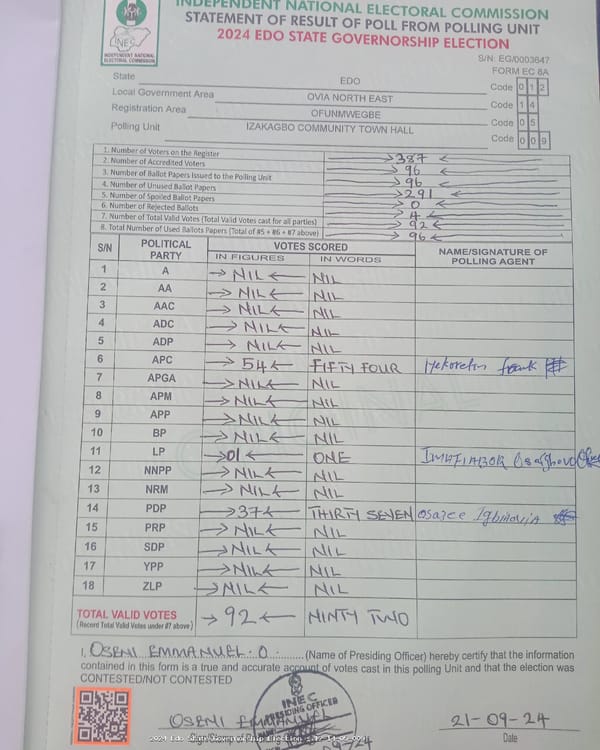 INDEPENDENT NATIONAL ELECTORAL COMMISSION
STATEMENT OF RESULT OF POLL FROM POLLING UNIT
2024 EDO STATE GOVERNORSHIP ELECTION
INEC
INDEPENDENT NATIONAL ELECTORAL COMMISSION
S/N: EG/0003647
FORM EC 8A
State EDO Code 0 1 2
Local Government Area OVIA NORTH EAST Code 1 4
Registration Area OFUNMWEGBE Code 0 5
Polling Unit IZAKAGBO COMMUNITY TOWN HALL Code 0 0 9
1. Number of Voters on the Register 387
2. Number of Accredited Voters 96
3. Number of Ballot Papers Issued to the Polling Unit 96
4. Number of Unused Ballot Papers 291
5. Number of Spoiled Ballot Papers 0
6. Number of Rejected Ballots 4
7. Number of Total Valid Votes (Total Valid Votes cast for all parties) 92
8. Total Number of Used Ballots Papers (Total of #5 + #6 + #7 above) 96
S/N POLITICAL PARTY VOTES SCORED NAME/SIGNATURE OF POLLING AGENT
IN FIGURES IN WORDS
1 A NIL NIL
2 AA NIL NIL
3 AAC NIL NIL
4 ADC NIL NIL
5 ADP NIL NIL
6 APC 54 FIFTY FOUR
7 APGA NIL NIL
8 APM NIL NIL
9 APP NIL NIL
10 BP NIL NIL
11 LP 01 ONE
12 NNPP NIL NIL
13 NRM NIL NIL
14 PDP 37 THIRTY SEVEN
15 PRP NIL NIL
16 SDP NIL NIL
17 YPP NIL NIL
18 ZLP NIL NIL
TOTAL VALID VOTES 92 NINTY TWO
(Record Total Valid Votes under #7 above)
I, OSENI EMMANUEL. O. (Name of Presiding Officer) hereby certify that the information
contained in this form is a true and accurate account of votes cast in this polling Unit and that the election was
CONTESTED/NOT CONTESTED
INEC
PRESIDING OFFICER
OSENI EMMANUEL 21-09-24
Date